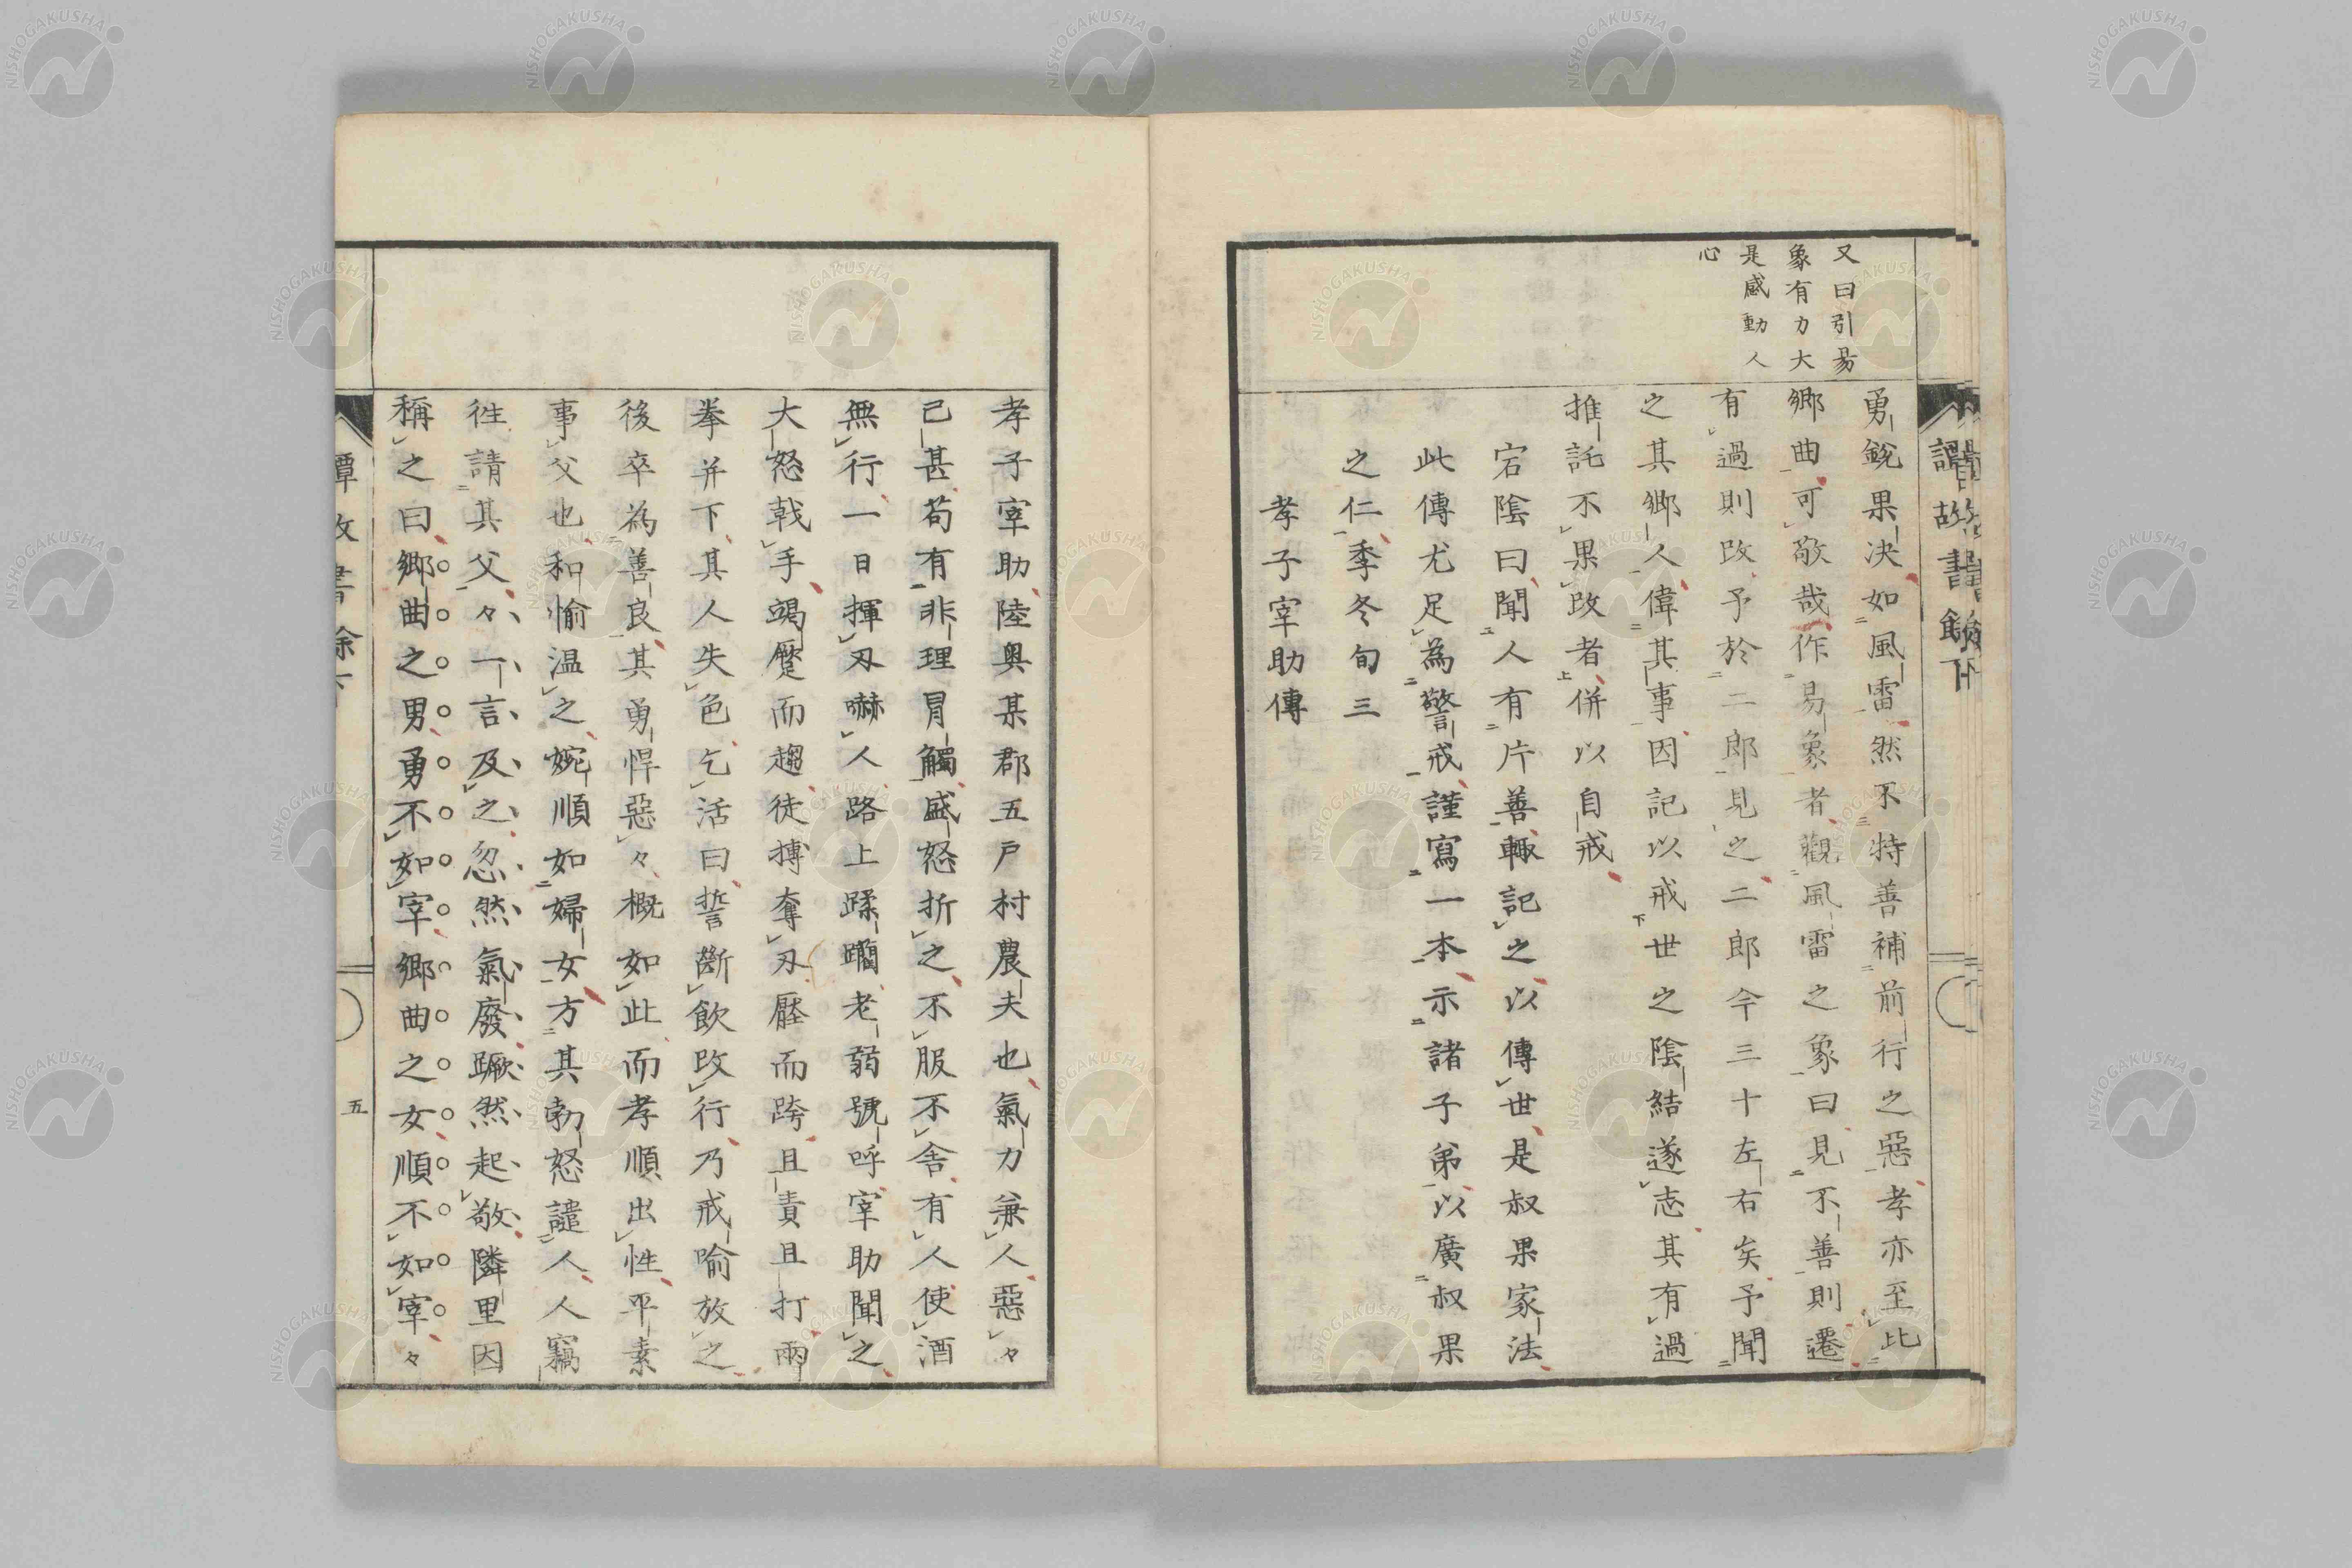 又曰引易
象有力大
是感動人
心
勇鋭果决如風雷然不特善補前行之惡孝亦至此
鄉曲可敬哉作易象者觀風雷之象曰見不善則遷
有過則改予於二郎見之二郎今三十左右矣予聞
之其鄉人偉其事因記以戒世之陰結遂志其有過
推託不果改者併以自戒
宕陰曰聞人有片善輙記之以傳世是叔果家法
此傳尤足為警戒謹寫一本示諸子弟以廣叔果
之仁季冬旬三
孝子宰助傳
孝子宰助陸奥某郡五戸村農夫也氣力兼人惡々
己甚苟有非理冒觸盛怒折之不服不舎有人使酒
無行一日揮刃嚇人路上蹂躪老弱號呼宰助聞之
大怒戟手竭蹙而趨徒搏奪刃壓而跨且責且打兩
拳并下其人失色乞活曰誓斷飲改行乃戒喻放之
後卒為善良其勇悍惡々概如此而孝順出性平素
事父也和愉温之婉順如婦女方其勃怒譴人人竊
徃請其父々一言及之忽然氣廢蹶然起敬隣里因
稱之曰鄉曲之男勇不如宰鄉曲之女順不如宰々
五
NISHOGAKUSHA